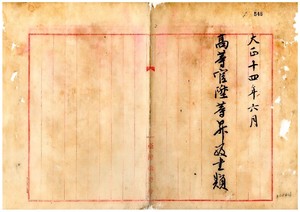 846
大正十四年六月
高等官陞等昇級書類